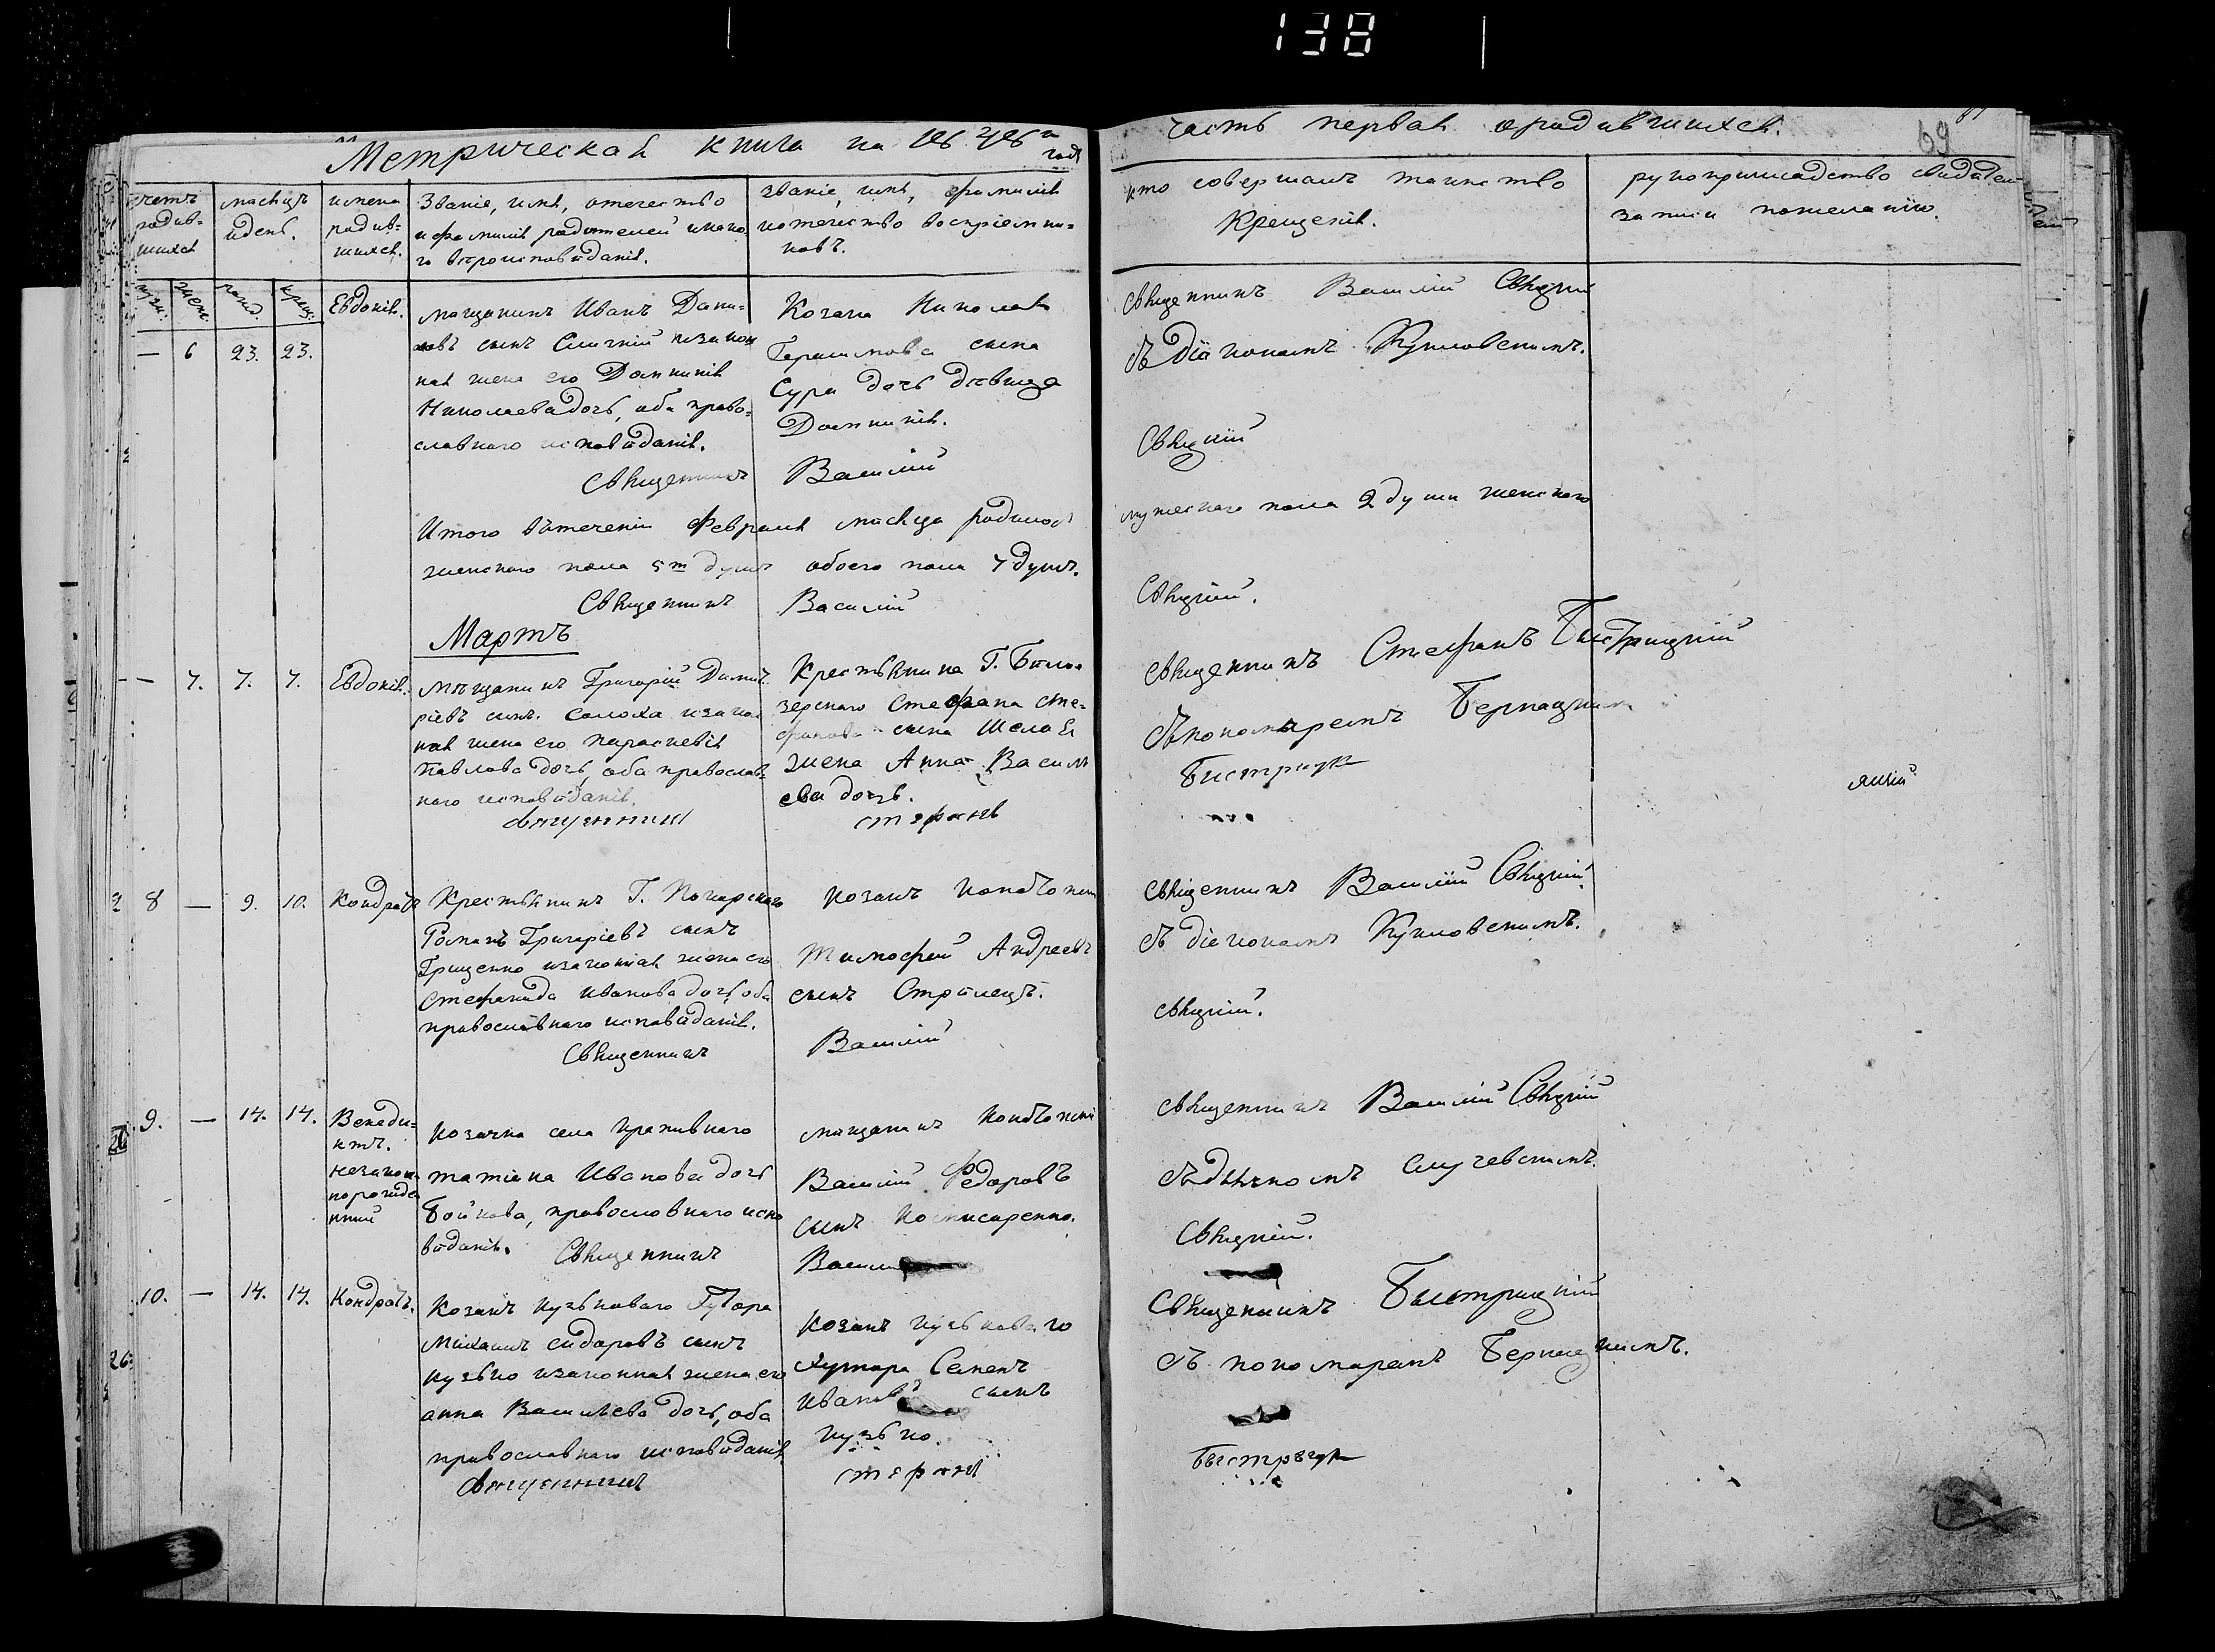 138
Метрическая книга на
годъ
часть первая о родившихся.
69
счетъ родив-
шихся
мѣсяцъ
и день.
имена
родив-
шихся.
Званіе, имя, отечество
и фамилія родителей и како-
го вѣроисповѣданія.
званіе, имя, фамилія
и отечество воспріемни-
ковъ.
кто совершалъ таинство
Крещенія.
рукоприкладство свидѣтелей
записи по желанію.
муж:
жен:
рожд.
крещ:
— 6 23. 23.
Евдокія.
мѣщанинъ Иванъ Дани-
ловъ сынъ и закон
ная жена его Домникія
Николаева дочь, оба право-
славнаго исповѣданія.
Священникъ
Козака Николая
Герасимова сына
Сура дочь дѣвица
Домникія.
Василій
Священникъ Василій Свѣцкій
съ діакономъ Куновскимъ.
Свѣцкій
Итого въ теченіи Февраля мѣсяца родилось
мужеского пола 2 души женского
женского пола 5ть душъ обоего пола 7 душъ.
Священникъ Василій
Свѣцкій.
Мартъ
— 7. 7. 7.
Евдокія.
Мѣщанинъ Григорій Димит
ріевъ сынъ. Солоха и закон
ная жена его Параскевія
Павлова дочь, оба православ-
наго исповѣданія.
священникъ
Крестьянина Г. Бѣло
зерскаго Стефана Сте-
фанова сына
жена Анна Василь
ева дочь.
стефанъ
священникъ Стефанъ Быстрицкій
съ пономаремъ
Быстрицк
8 — 9. 10.
Кондратъ
Крестьянинъ Г. Почарскаго
Романъ Григоріевъ сынъ
Грищенко и законная жена его
Стефанида Иванова дочь, оба
православнаго исповѣданія.
Священникъ
козакъ
Тимофей Андреевъ
сынъ Стрѣлецъ.
Василій
священникъ Василій Свѣцкій.
съ діакономъ Куновскимъ.
свѣцкій.
9. — 14. 14.
Венеди-
ктъ.
незакон
порожде
нный
Козачка села Крапивнаго
татіана Иванова дочь
Бойкова, православнаго испо
вѣданія. Священникъ
мѣщанинъ
Василій Федоровъ
сынъ Комисаренко.
Васил
священникъ Василій Свѣцкій
съ дьячкомъ
Свѣцкій.
10. — 14. 14.
Кондратъ.
Козакъ Кузькового Хутора
Михаилъ Сидоровъ сынъ
Кузько и законная жена его
анна Васильева дочь, оба
православнаго исповѣданія
священникъ
26
козакъ Кузькового
хутора Семенъ
Ивановъ сынъ
Кузько.
стефанъ
Священникъ Быстрицкій
съ пономаремъ
Быстрицк